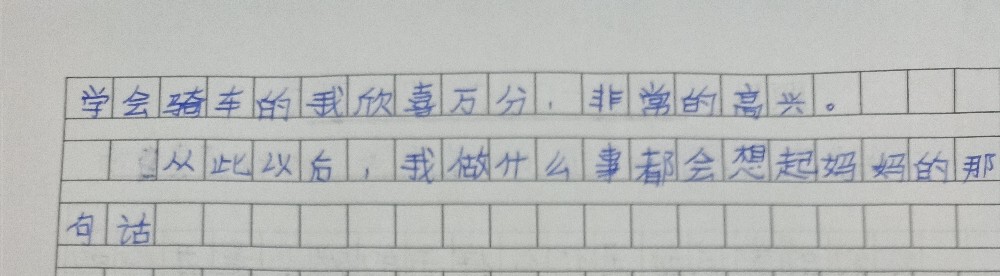 学会骑车的我欣喜万分，非常的高兴。
从此以后，我做什么事都会想起妈妈的那
句话